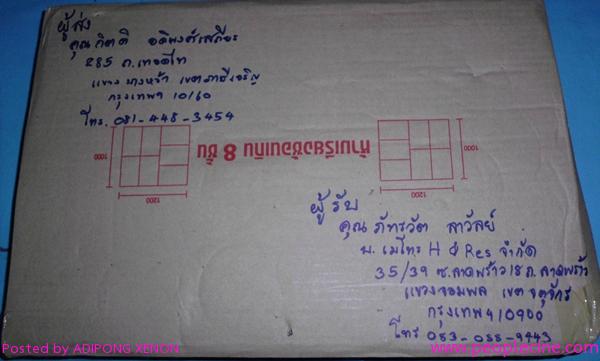 ผู้ส่ง
คุณ กิตติ
285 ถ.เทอดไท
แขวง บางหว้า เขต ภาษีเจริญ
กรุงเทพฯ 10160
โทร. 081-448-3454
ห้ามเรียงซ้อนเกิน 8 ชั้น
1000
1200
1000
1200
ผู้รับ
คุณ ภัทรวัต ลาวัลย์
บ. เมโทร H & Res จำกัด
35/39 ซ.ลาดพร้าว 18 ถ.ลาดพร้าว
แขวงจอมพล เขต จตุจักร
กรุงเทพฯ 10900
โทร 083-088-9443
Posted by ADIPONG XENON
www.peoplecine.com